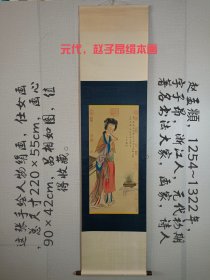 元代,赵子昂绢本画
这张手绘人物绢画,仕女画
,总尺寸220×55cm,画心
90×42cm,品相如图,值
得收藏。
赵孟頫,1254~1322年,
字子昂,浙江人,元代初期
著名书法大家,画家,诗人